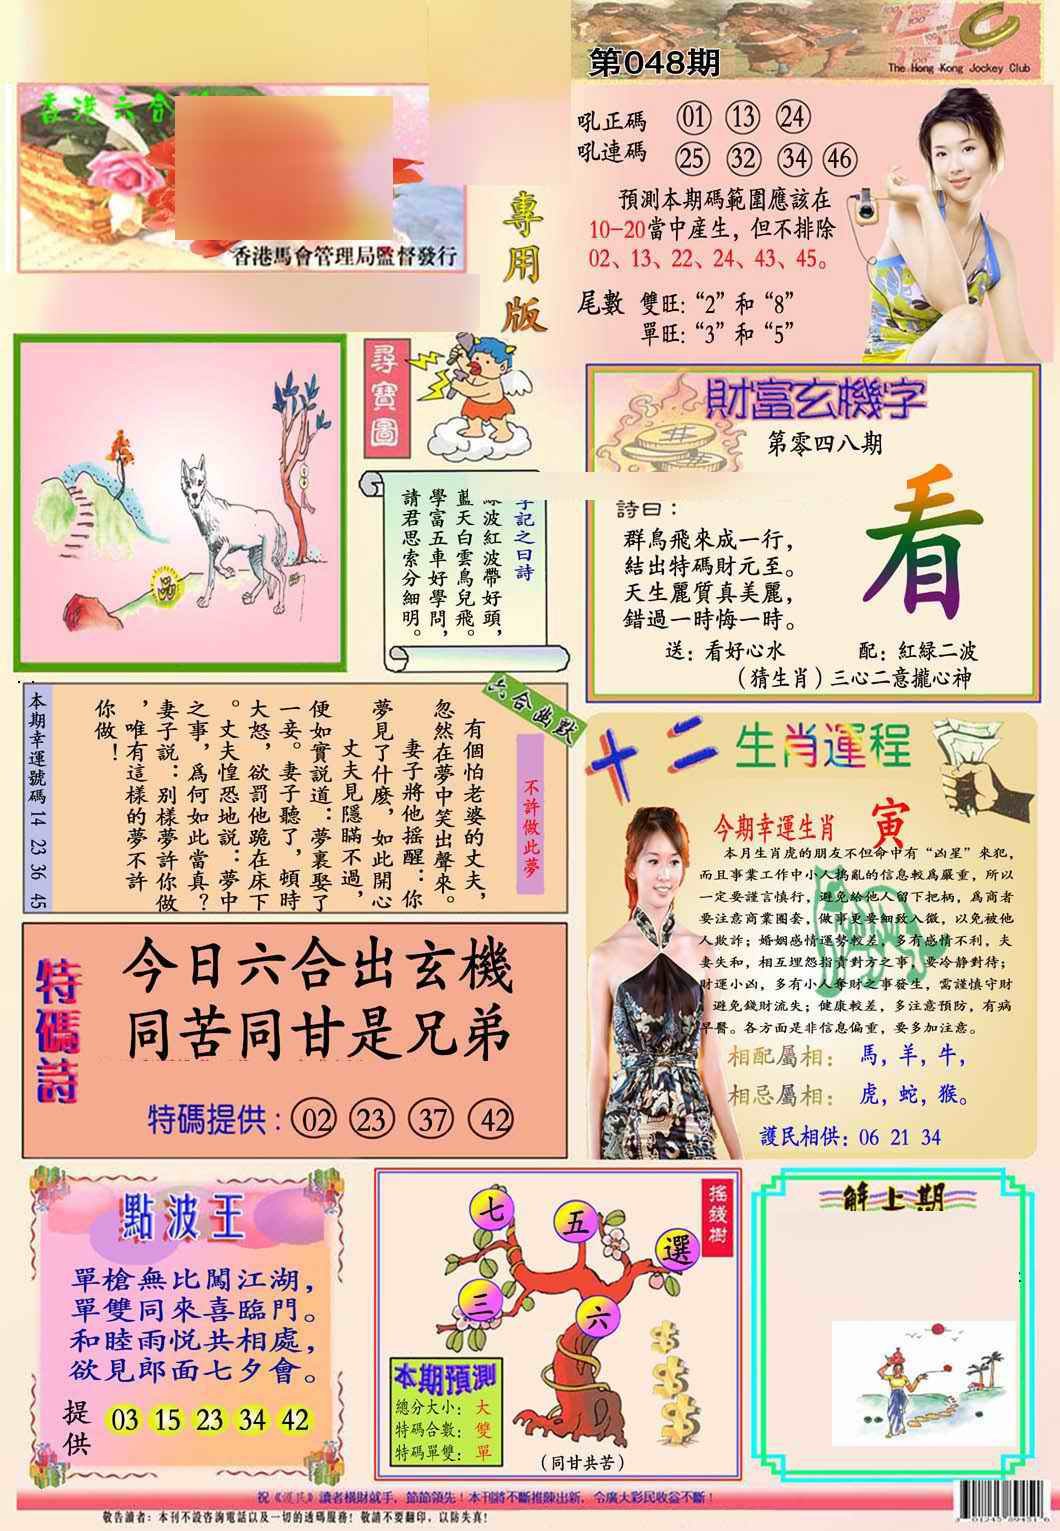 第048期
The Hong Kong Jockey Club
香港六合
香港馬會管理局監督發行
專用版
吼正碼 01 13 24
吼連碼 25 32 34 46
預測本期碼範圍應該在
10-20當中産生，但不排除
02、13、22、24、43、45。
尾數 雙旺:“2”和“8”
單旺:“3”和“5”
尋寶圖
字記之曰詩
綠波紅波帶好頭，
藍天白雲鳥兒飛。
學富五車好學問，
請君思索分細明。
財富玄機字
第零四八期
詩曰：
群鳥飛來成一行，
結出特碼財元至。
天生麗質真美麗，
錯過一時悔一時。
看
送：看好心水 配：紅緑二波
（猜生肖）三心二意攏心神
六合幽默
不許做此夢
有個怕老婆的丈夫，
忽然在夢中笑出聲來。
妻子將他摇醒：你
夢見了什麽，如此開心
丈夫見隱瞞不過，
便如實説道：夢裏娶了
一妾。妻子聽了，頓時
大怒，欲罰他跪在床下
。丈夫惶恐地説：夢中
之事，爲何如此當真？
妻子説：别樣夢許你做
，唯有這樣的夢不許
你做！
本期幸運號碼 14 23 36 45
十二生肖運程
今期幸運生肖 寅
本月生肖虎的朋友不但命中有“凶星”來犯，
而且事業工作中小人搗亂的信息較爲嚴重，所以
一定要謹言慎行，避免給他人留下把柄，爲商者
要注意商業圈套，做事更要細致入微，以免被他
人欺詐；婚姻感情運勢較差，多有感情不利，夫
妻失和，相互埋怨指責對方之事，要冷靜對待；
財運小凶，多有小人奪財之事發生，需謹慎守財
，避免錢財流失；健康較差，多注意預防，有病
早醫。各方面是非信息偏重，要多加注意。
相配屬相： 馬，羊，牛，
相忌屬相： 虎，蛇，猴。
護民相供：06 21 34
特碼詩
今日六合出玄機
同苦同甘是兄弟
特碼提供：02 23 37 42
點波王
單槍無比闖江湖，
單雙同來喜臨門。
和睦雨悦共相處，
欲見郎面七夕會。
提供 03 15 23 34 42
摇錢樹
七 五 選
三 六
本期預測
總分大小：大
特碼合數：雙
特碼單雙：單
（同甘共苦）
解上期
祝《護民》讀者横財就手，節節領先！本刊將不斷推陳出新，令廣大彩民收益不斷！
敬告讀者：本刊不設咨詢電話以及一切的透碼服務！敬請不要翻印，以防失真！